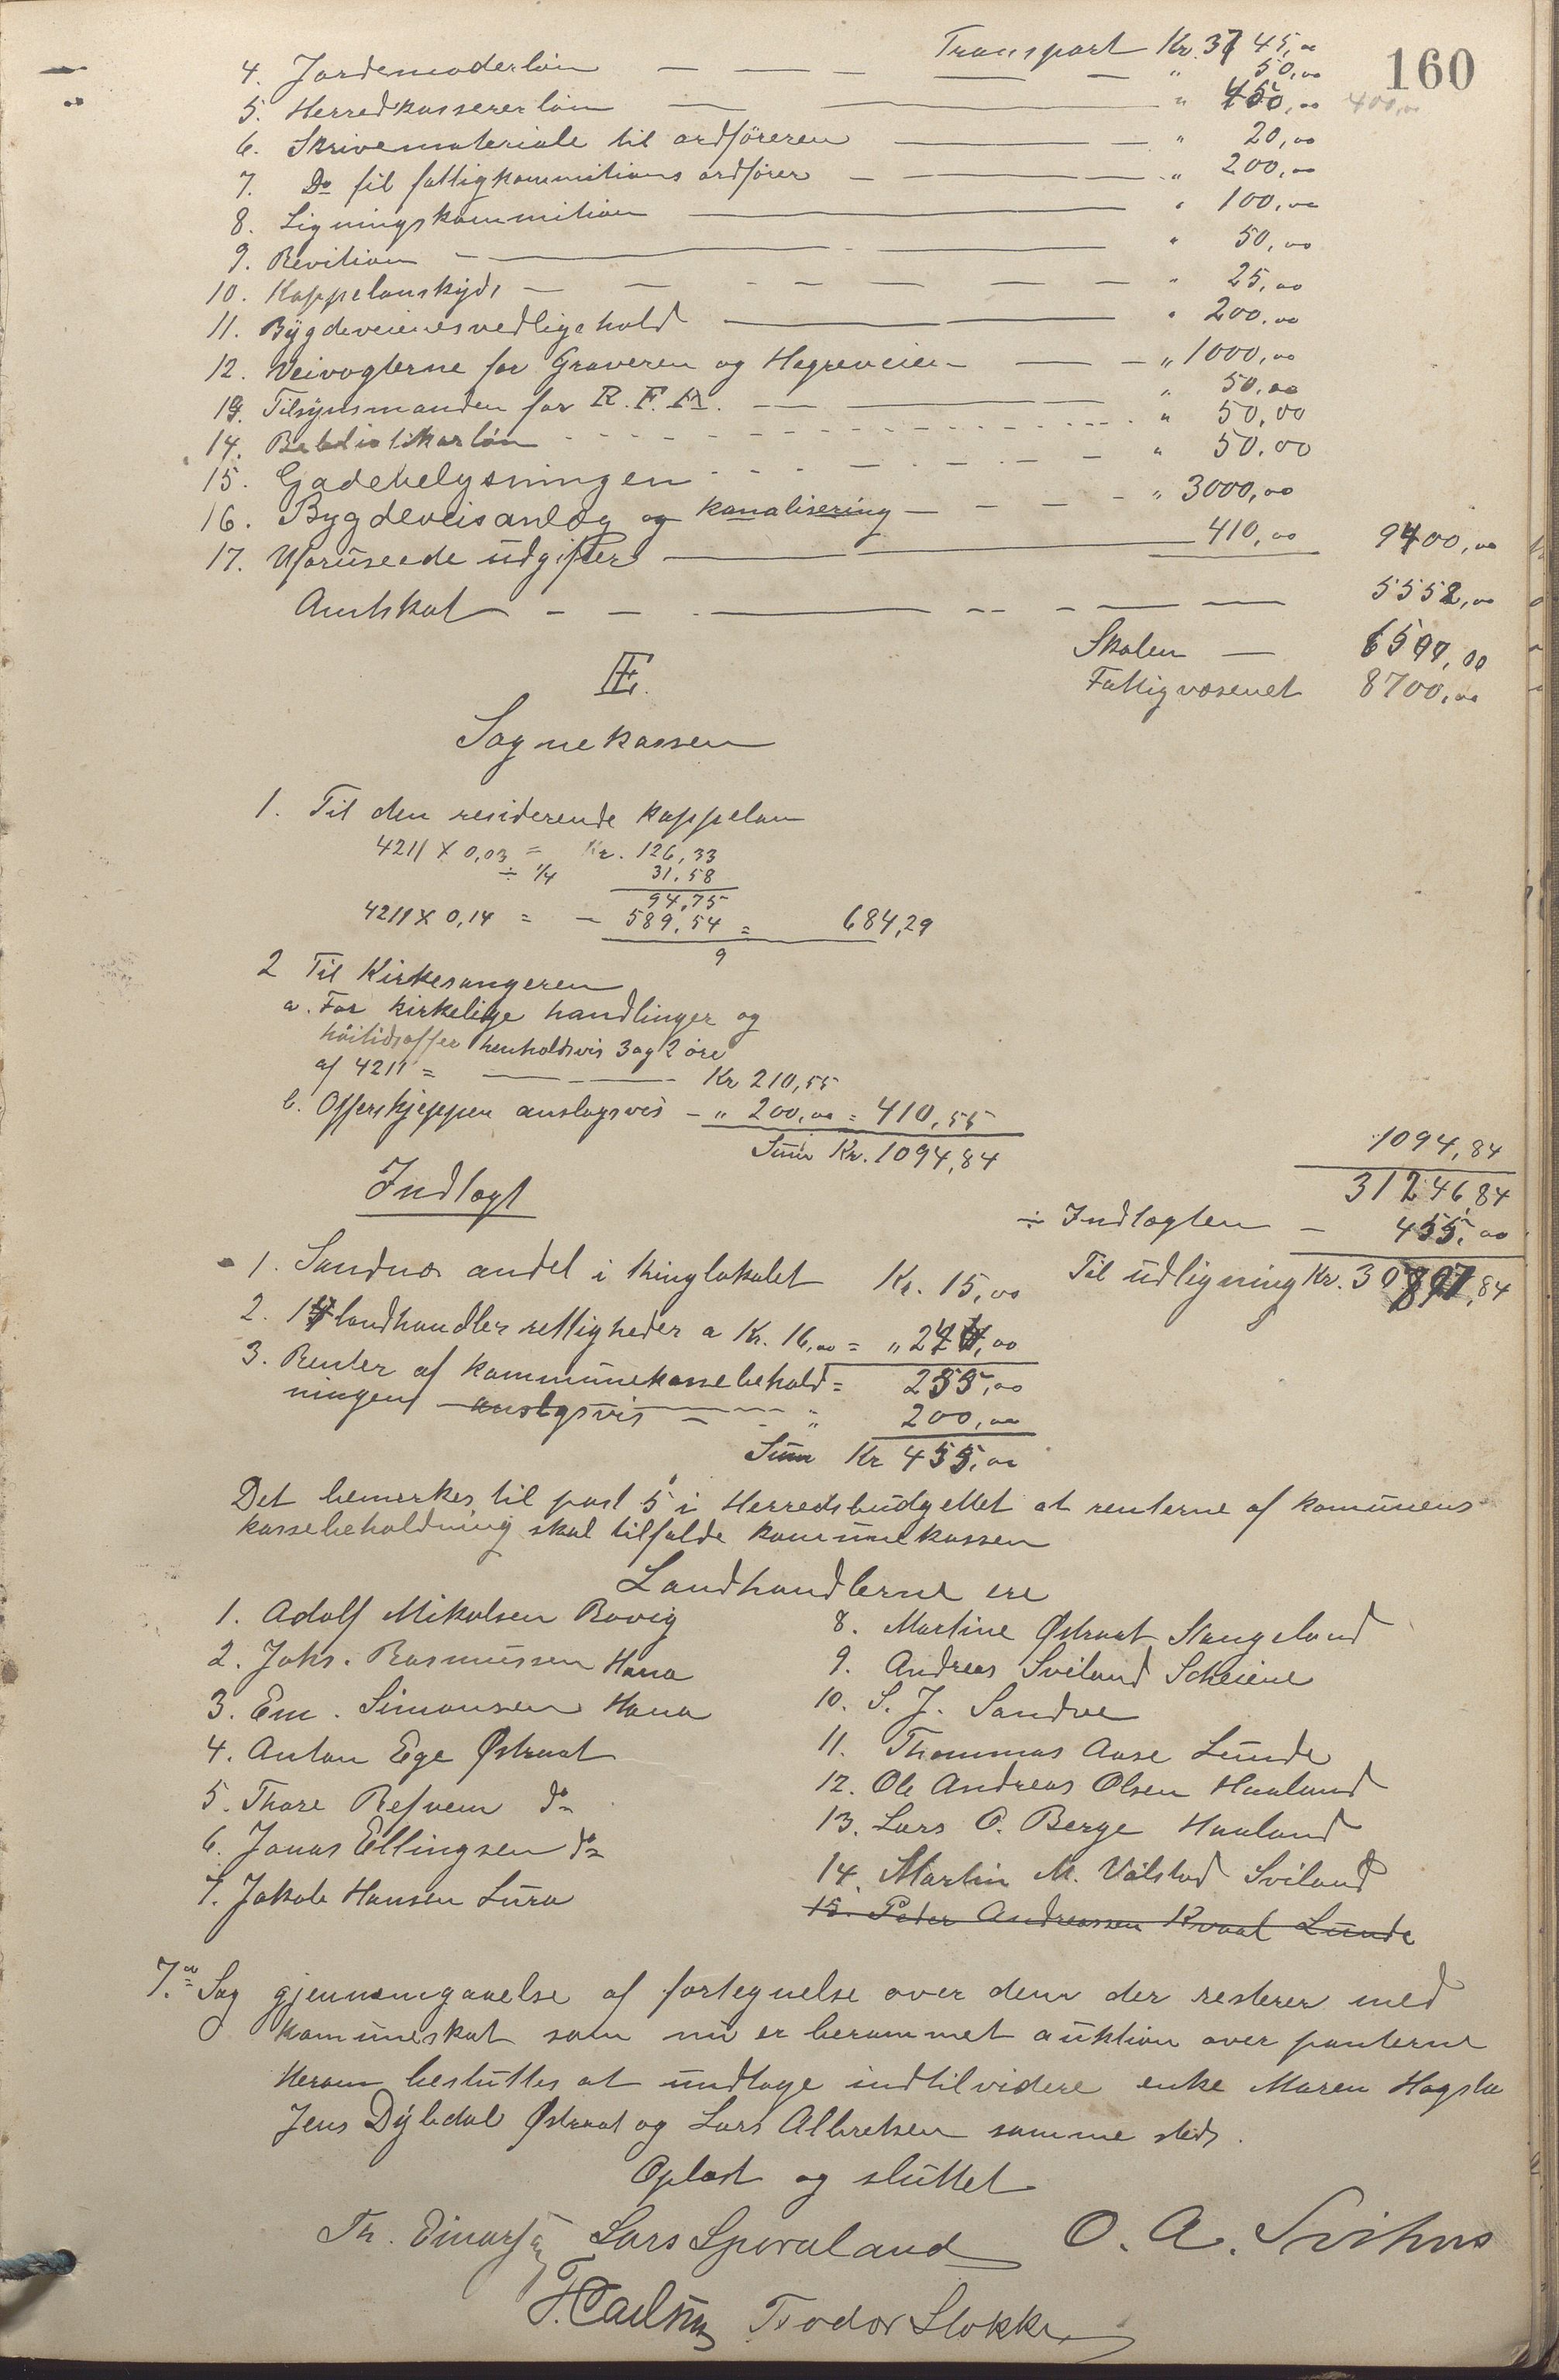 160
Transport Kr. 3745,00
4. Jordemoderløn — — — " 50,00
5. Herredkassererløn — — " 450,00 400,00
6. Skrivemateriale til ordføreren — — " 20,00
7. Do til fattigkommitions ordfører — — " 200,00
8. Ligningskommition — " 100,00
9. Revition — — " 50,00
10. Kappelanskyds — — " 25,00
11. Bygdeveienesvedligehold — — " 200,00
12. Veivogterne for Graveren og Hogreveien — — " 1000,00
13. Tilsynsmanden for R. F. A. — — " 50,00
14. Bebliotikarløn - - - " 50,00
15. Gadebelysningen - - - " 50,00
16. Bygdeveisanlæg og kanalisering — — " 3000,00
17. Uforuseede udgifter — 410,00 9400,00
Amtskat — — — 5552,00
Skolen — 6500,00
Fattigvæsenet 8700,00
E.
Sognekassen
1. Til den residerende kappelan
4211 X 0,03 = Kr. 126,33
÷ 1/4 31,58
94,75
4211 X 0,14 = — 589,54 = 684,29
9
2 Til Kirkesangeren
a. For kirkelige handlinger og
høitidsoffer henholdsvis 3 og 2 øre
af 4211 = — — Kr 210,55
b. Offerskjeppen anslagsvis — " 200,00 = 410,55
Sum Kr. 1094,84
1094,84
31246,84
Indtægt
÷ Indtægten — 455,00
Til udligning Kr. 30897,84
1. Sandnæs andel i thinglokalet Kr. 15,00
2. 14 landhandler rettigheder a Kr. 16,00 = " 240,00
3. Renter af kommunekassebehold= 255,00
ningen anslagsvis — — " 200,00
Sum Kr 455,00
Det bemerkes til post 5 i Herredsbudgettet at renterne af komunens
kassebeholdning skal tilfalde komunekassen
Landhandlerne ere
1. Adolf Mikalsen Rovig
2. Johs. Rasmussen Hana
3. Em. Simonsen Hana
4. Anton Ege Østraat
5. Thore Refvem do
6. Jonas Ellingsen do
7. Jakob Hansen Lura
8. Martine Østraat Stangeland
9. Andreas Sviland Scheiene
10. S. J. Sandve
11. Thommas Aase Lunde
12. Ole Andreas Olsen Haaland
13. Lars O. Berge Haaland
14. Martin M. Vålstad Sviland
15. Peder Andreassen Kvaal Lunde
7.de Sag gjennemgaaelse af fortegnelse over dem der resterer med
komuneskat som nu er berammet auktion over panterne
Herom besluttes at undtage indtilvidere enke Maren Hogsta
Jens Dybdal Østraat og Lars Albretsen samme steds.
Oplæst og sluttet
Th. Einarsen Lars Sporaland O. A. Svihus
Teodor Stokke